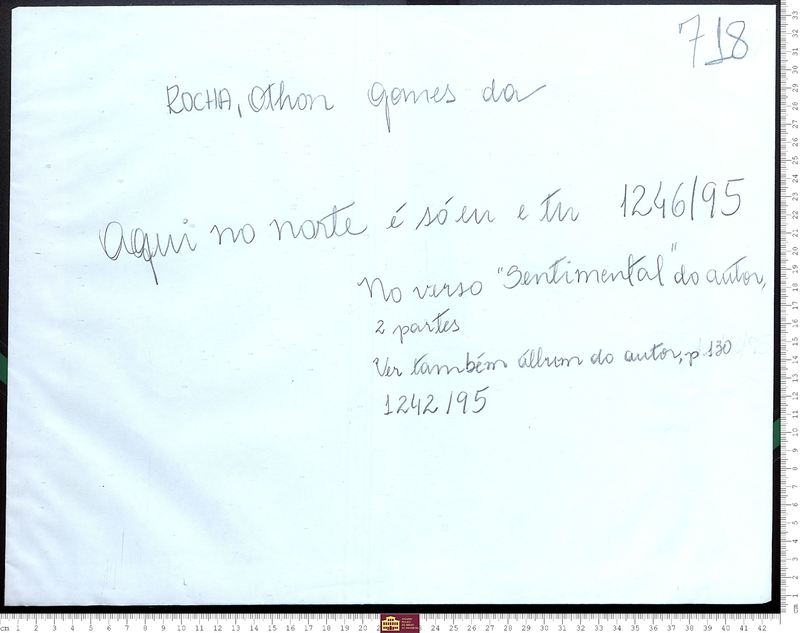 718
ROCHA, Othon Gomes da
Aqui no norte é só eu e tu 1246/95
No verso "Sentimental" do autor,
2 partes
Ver também álbum do autor, p. 130
1242/95